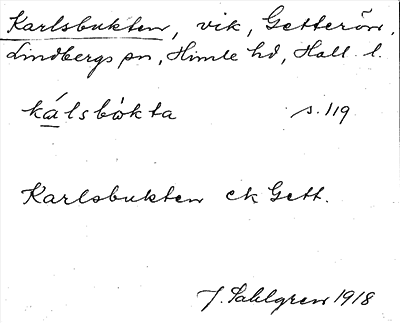 Karlsbukten, vik, Getterön,
Lindbergs sn, Himle hd, Hall. l.
kálsbòkta s. 119
Karlsbukten ek Gett.
J. Sahlgren 1918